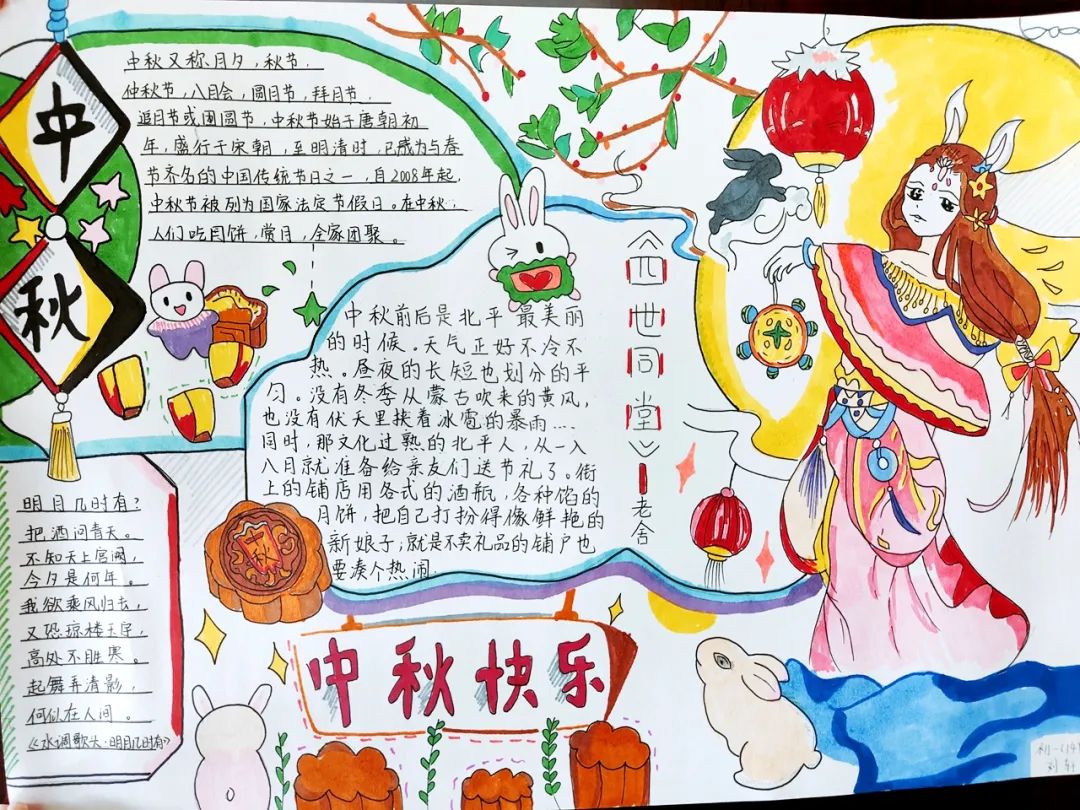 中
秋
中秋又称月夕，秋节，
仲秋节，八月会，圆月节，拜月节，
追月节或团圆节，中秋节始于唐朝初
年，盛行于宋朝，至明清时，已成为与春
节齐名的中国传统节日之一，自2008年起，
中秋节被列为国家法定节假日。在中秋，
人们吃月饼，赏月，全家团聚。
《四世同堂》—老舍
中秋前后是北平最美丽
的时候。天气正好不冷不
热。昼夜的长短也划分的平
匀。没有冬季从蒙古吹来的黄风，
也没有伏天里挟着冰雹的暴雨....
同时，那文化过熟的北平人，从一入
八月就准备给亲友们送节礼了。街
上的铺店用各式的酒瓶，各种馅的
月饼，把自己打扮得像鲜艳的
新娘子；就是不卖礼品的铺户也
要凑个热闹.
明月几时有？
把酒问青天。
不知天上宫阙，
今夕是何年。
我欲乘风归去，
又恐琼楼玉宇，
高处不胜寒。
起舞弄清影，
何似在人间。
《水调歌头·明月几时有》
中秋
中秋快乐